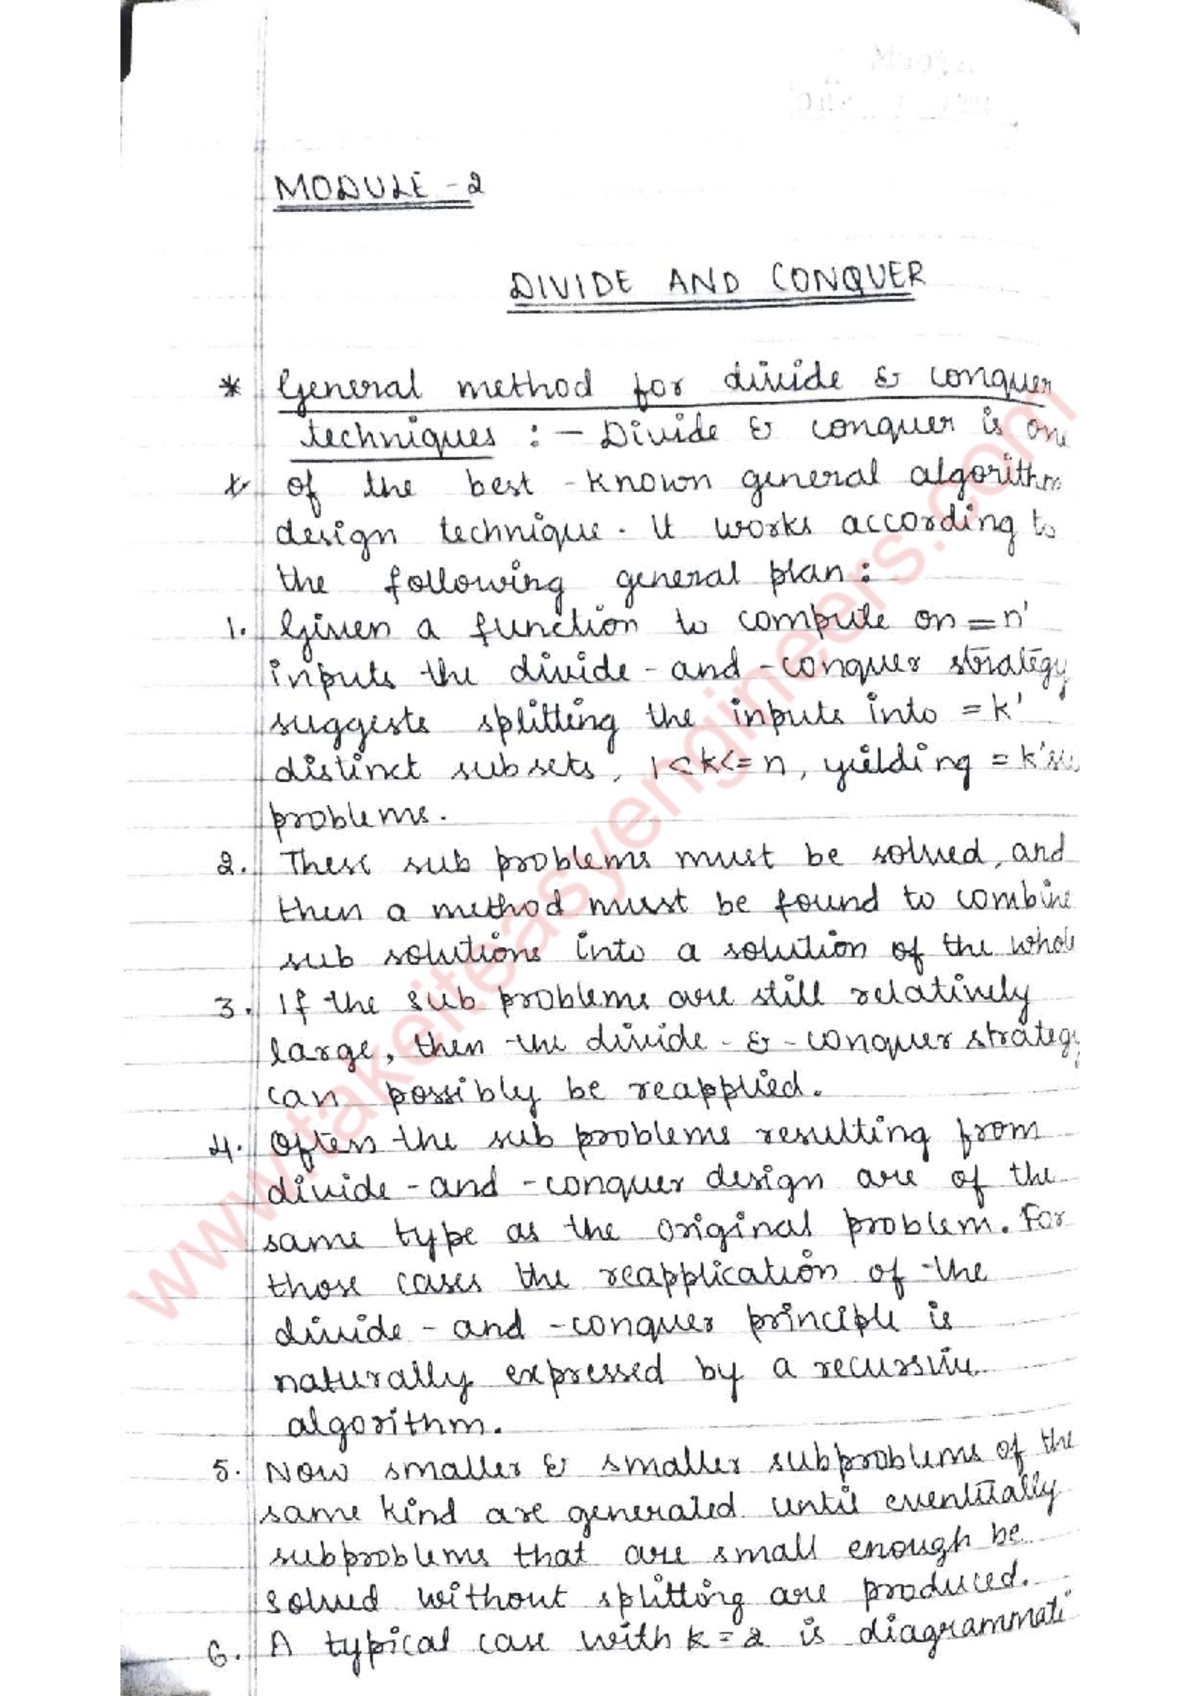 MODULE - 2
DIVIDE AND CONQUER
* General method for divide & conquer
techniques : - Divide & conquer is one
of the best - known general algorithm
design technique. It works according to
the following general plan :
1. Given a function to compute on = n'
inputs the divide - and - conquer strategy
suggests splitting the inputs into = k'
distinct subsets, 1<k<=n, yielding = k'su
problems.
2. These sub problems must be solved, and
then a method must be found to combine
sub solutions into a solution of the whole
3. If the sub problems are still relatively
large, then the divide - & - conquer strategy
can possibly be reapplied.
4. Often the sub problems resulting from
divide - and - conquer design are of the
same type as the original problem. For
those cases the reapplication of the
divide - and - conquer principle is
naturally expressed by a recursive
algorithm.
5. Now smaller & smaller subproblems of the
same kind are generated until eventually
subproblems that are small enough be
solved without splitting are produced.
6. A typical case with k = 2 is diagrammati
www.takeiteasyengineers.com